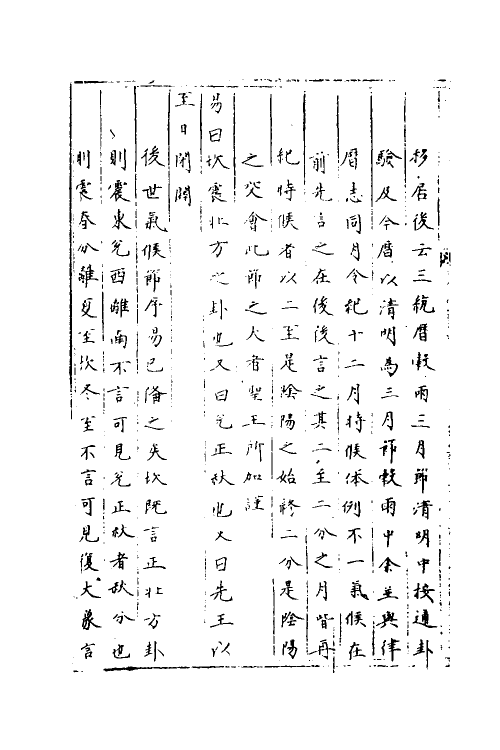 移居後云三統曆穀雨三月節清明中按通卦
驗及今曆以清明為三月節穀雨中余並與律
曆志同月令紀十二月時候体例不一氣候在
前先言之在後後言之其二至二分之月皆再
紀時候者以二至是陰陽之始終二分是陰陽
之交會此節之大者聖王所加謹
易曰坎震北方之卦也又曰兌正秋也又曰先王以
至日閉關
後世氣候節序易已備之矣坎既言正北方卦
則震東兌西離南不言可見兌正秋者秋分也
則震春分離夏至坎冬至不言可見復大象言